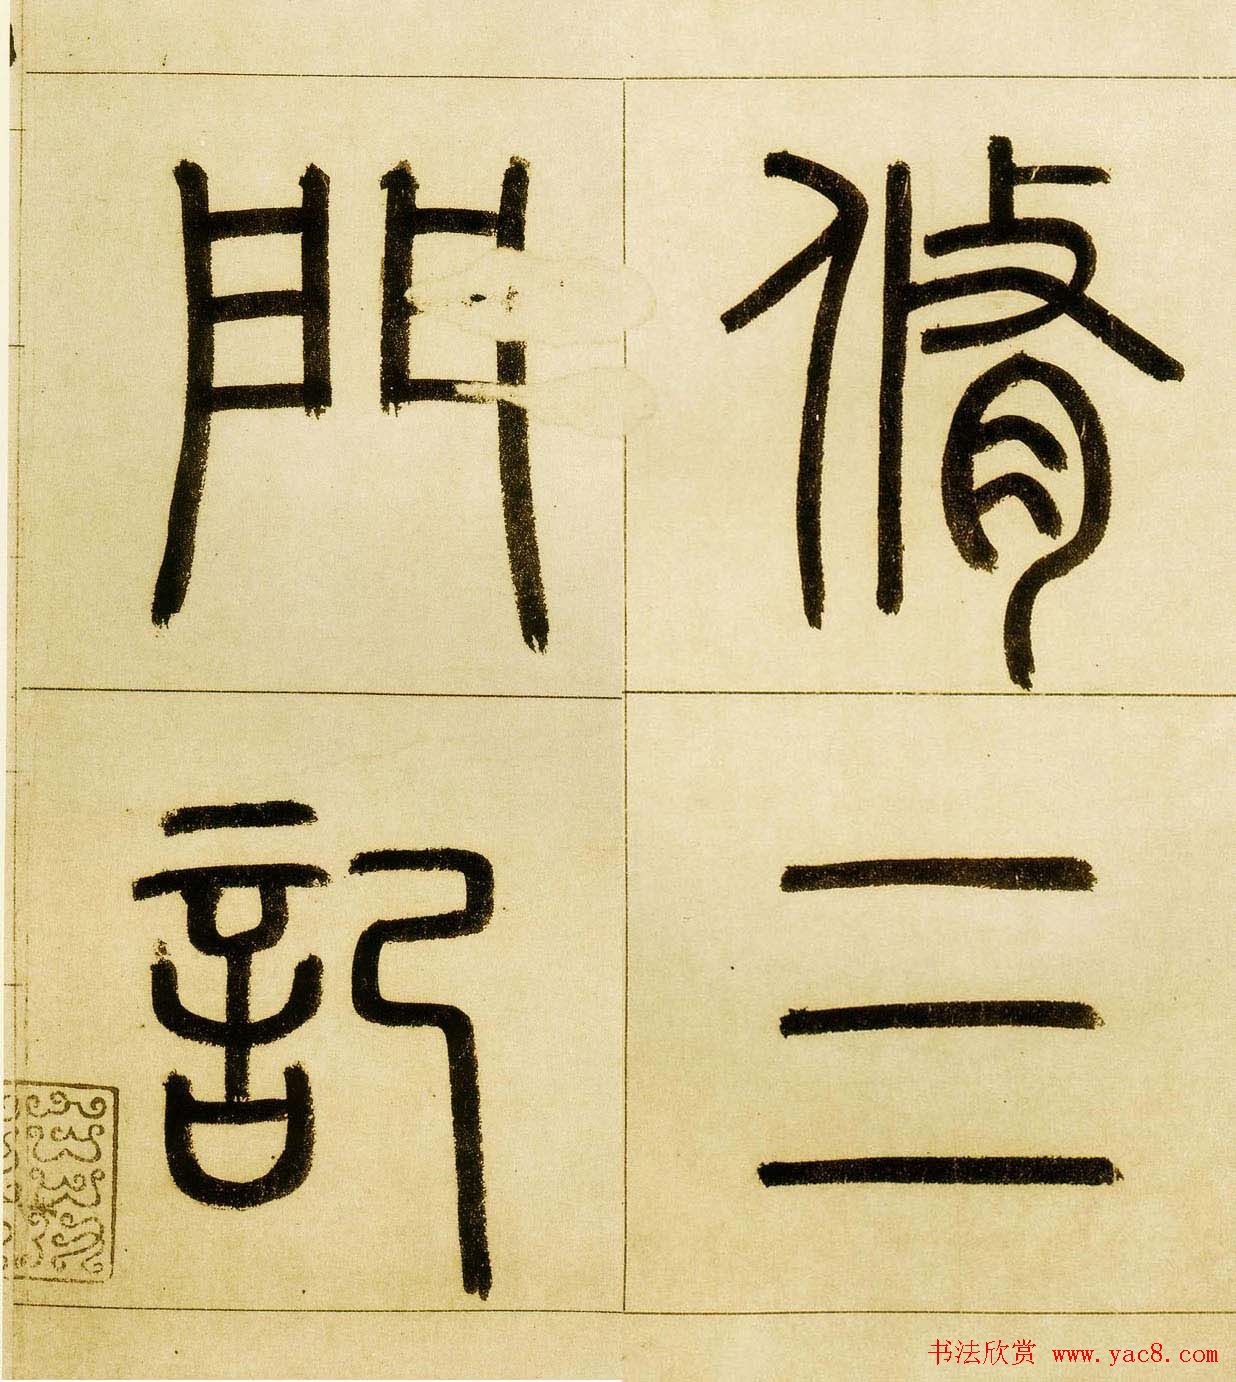 脩三
門記
书法欣赏 www.yac8.com